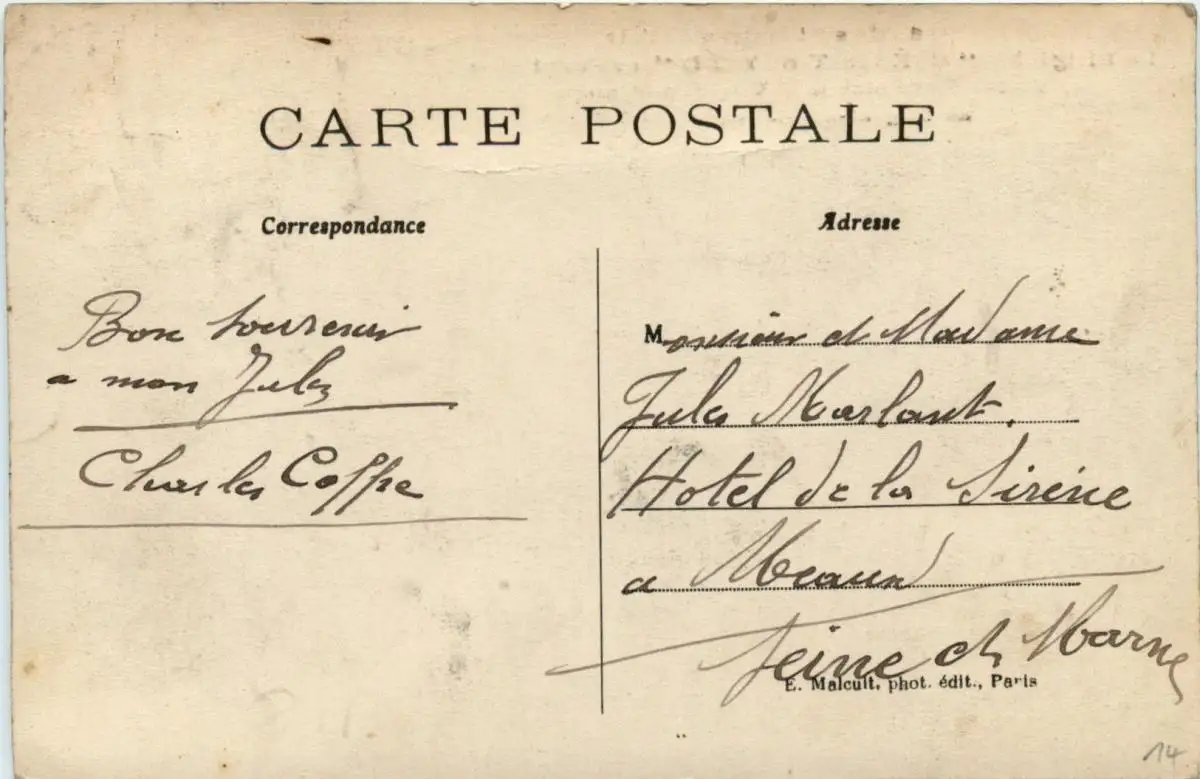 CARTE POSTALE
Correspondance
Bon souvenir
a mon Jules
Charles Coffre
Adresse
Monsieur et Madame
Jules Marlaut.
Hotel de la Sirène
a Meaux
Seine et Marne
E. Malcuit, phot. édit., Paris
14